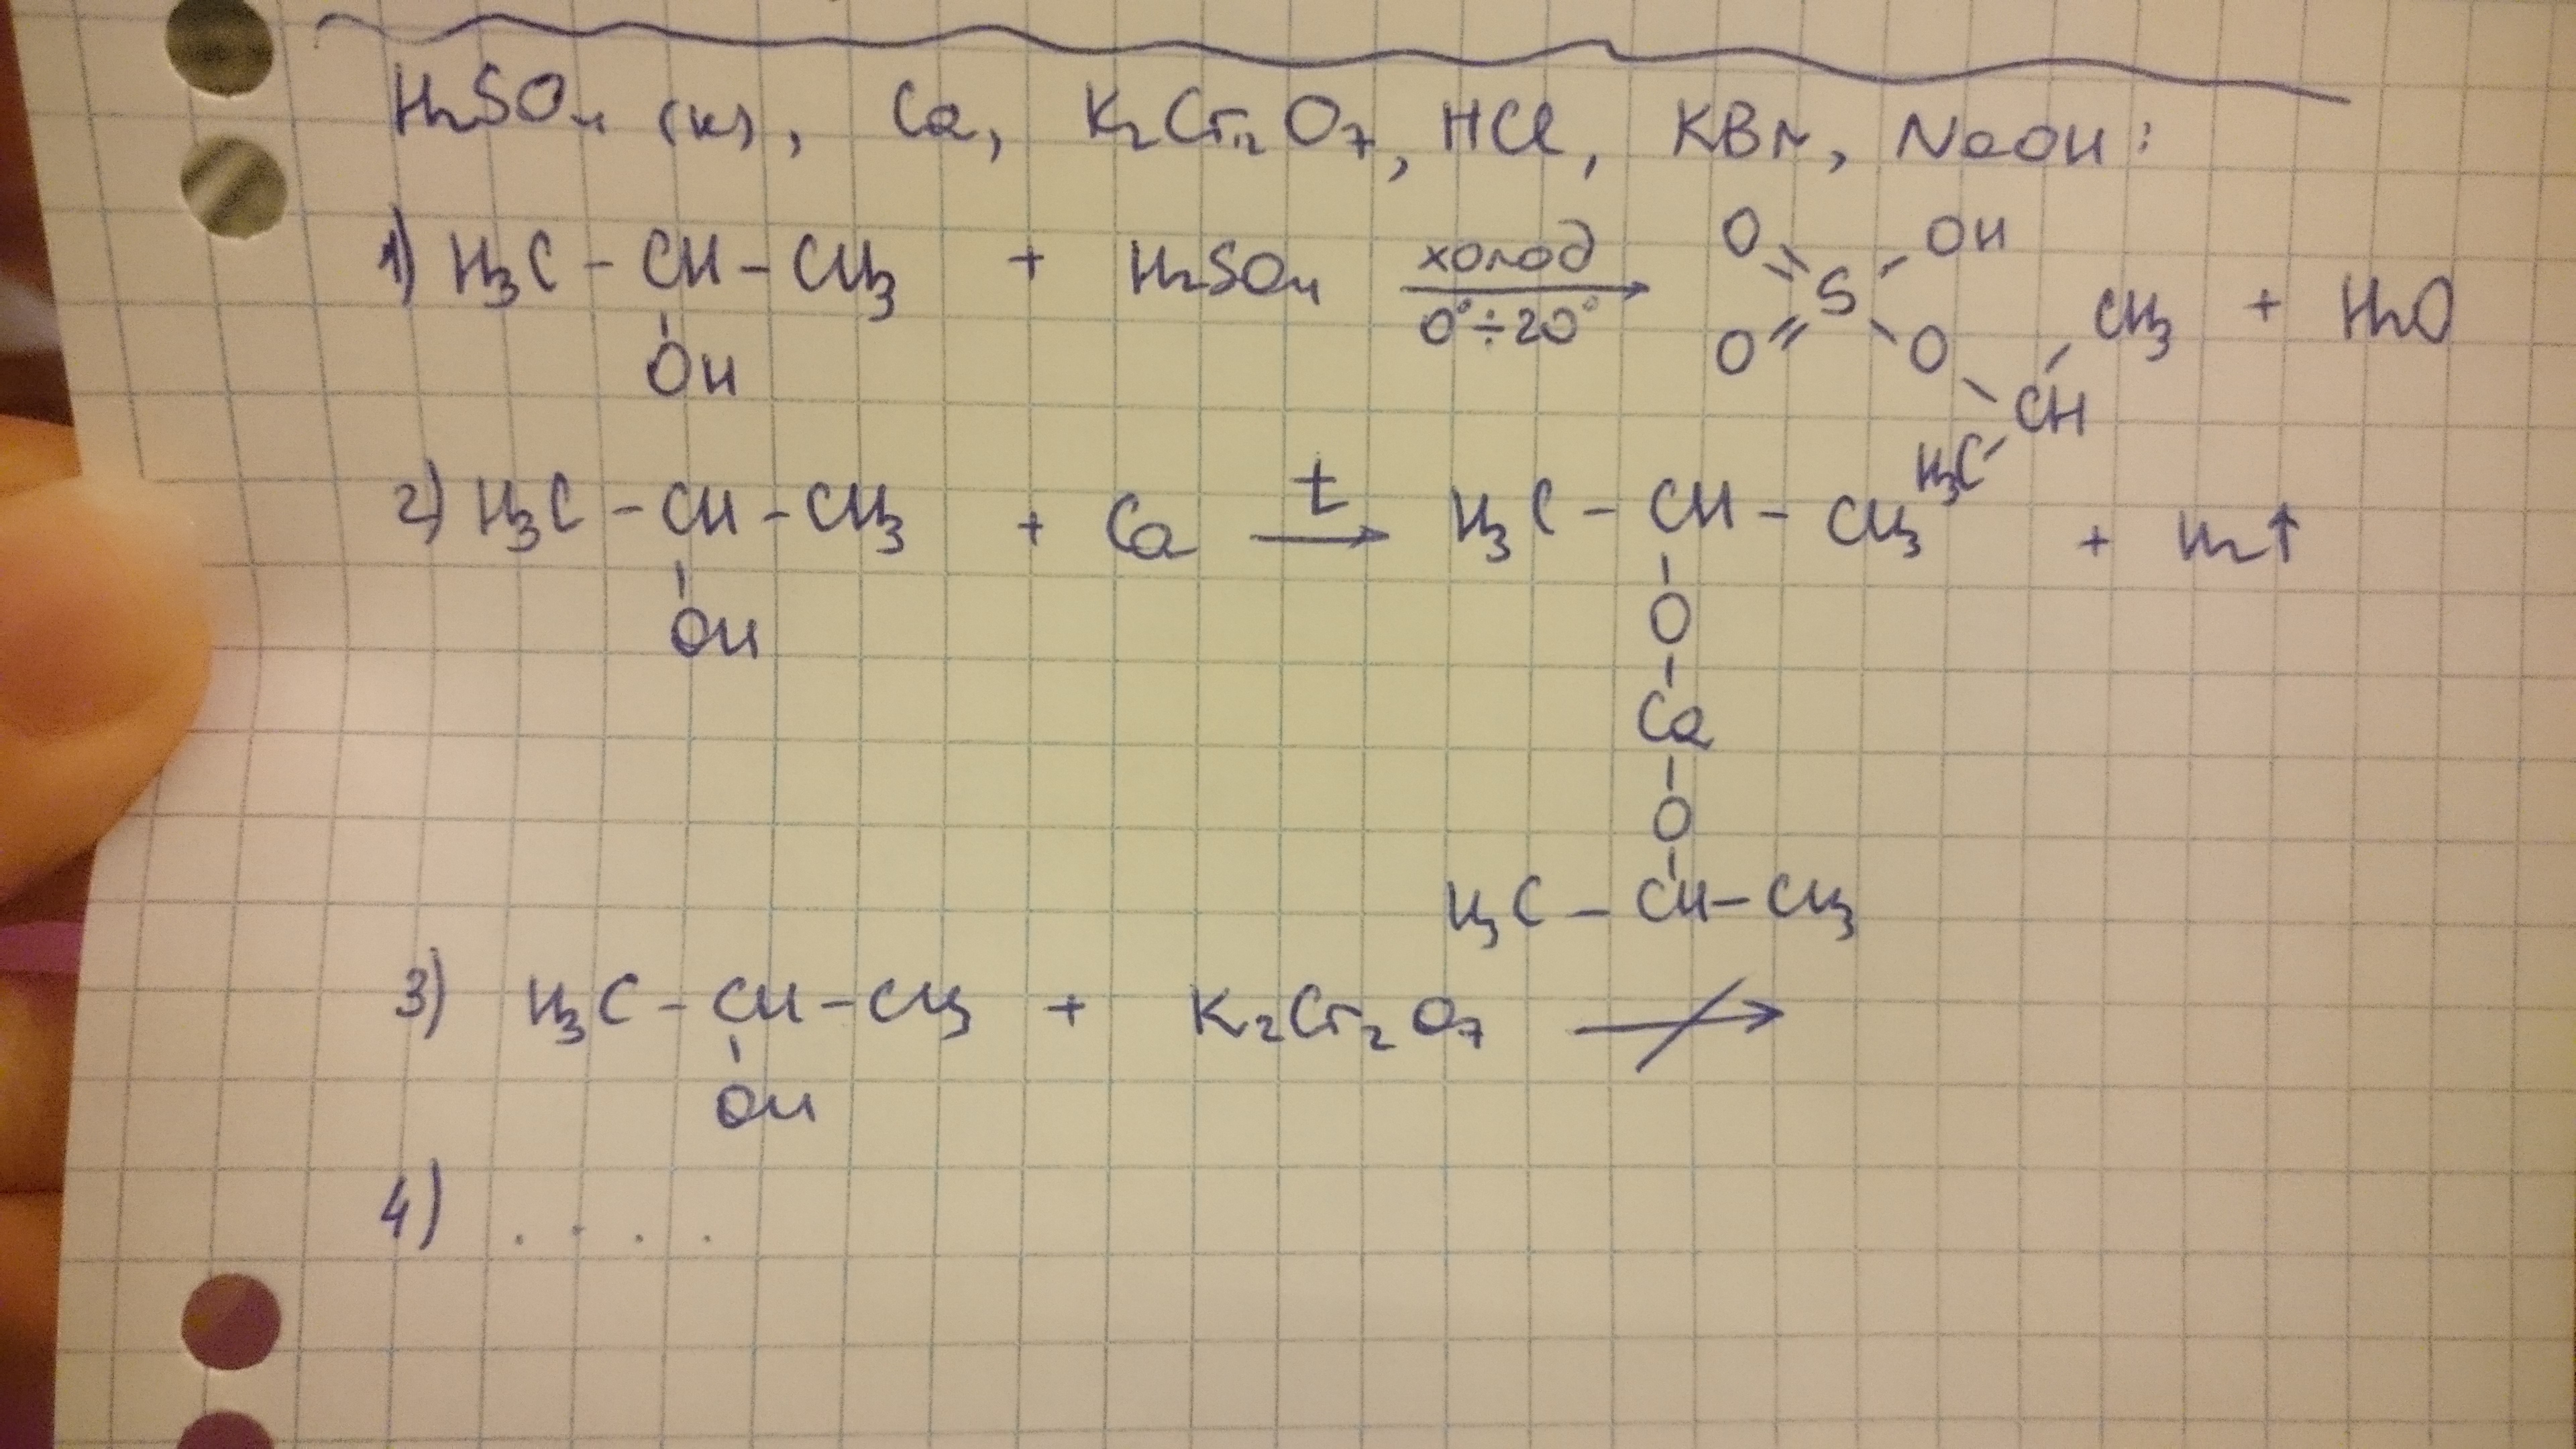 H₂SO₄ (к), Ca, K₂Cr₂O₇, HCl, KBr, NaOH:
1) H₃C - CH - CH₃ + H₂SO₄ холод 0° ÷ 20° → O = S - OH + H₂O
OH O = S - O - CH - CH₃
H₃C
2) H₃C - CH - CH₃ + Ca t → H₃C - CH - CH₃ + H₂↑
OH O
Ca
O
H₃C - CH - CH₃
3) H₃C - CH - CH₃ + K₂Cr₂O₇ ↛
OH
4) . . . .